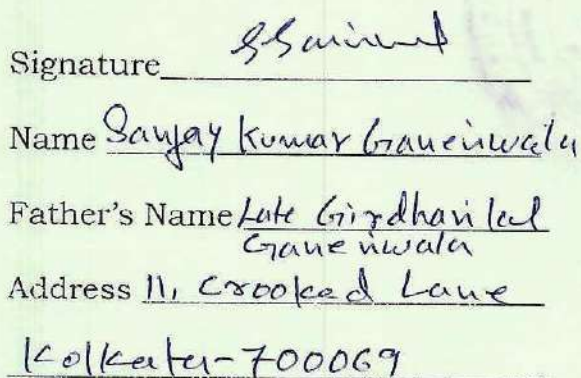 Signature
Name Sanjay Kumar Ganeriwala
Father's Name Late Girdhari lal
Ganeriwala
Address 11, Crooked Lane
Kolkata-700069